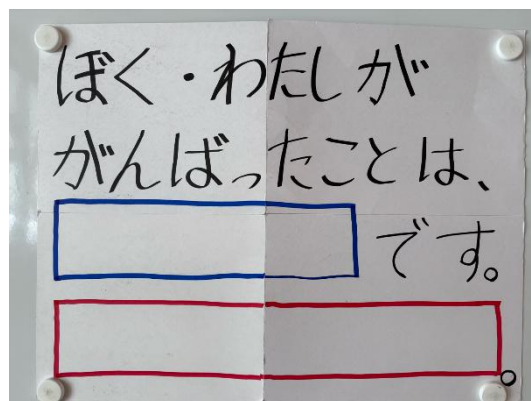 ぼく・わたしが
がんばったことは、
です。
。